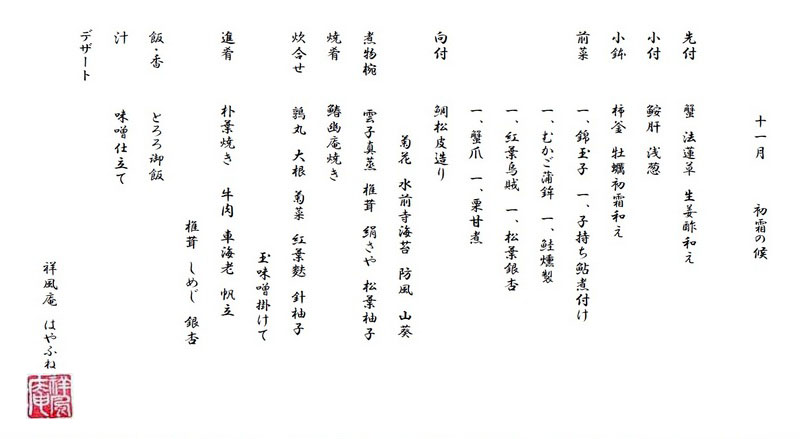 十一月　初霜の候
先付　蟹　法蓮草　生姜酢和え
小付　鮟肝　浅葱
小鉢　柿釜　牡蠣初霜和え
前菜　一、錦玉子　一、子持ち鮎煮付け
一、むかご蒲鉾　一、鮭燻製
一、紅葉烏賊　一、松葉銀杏
一、蟹爪　一、栗甘煮
向付　鯛松皮造り
菊花　水前寺海苔　防風　山葵
煮物椀　雲子真蒸　椎茸　絹さや　松葉柚子
焼肴　鰆幽庵焼き
炊合せ　鶉丸　大根　菊菜　紅葉麩　針柚子
玉味噌掛けて
進肴　朴葉焼き　牛肉　車海老　帆立
椎茸　しめじ　銀杏
飯・香　とろろ御飯
汁　味噌仕立て
デザート
祥風庵　はやふね
祥風庵